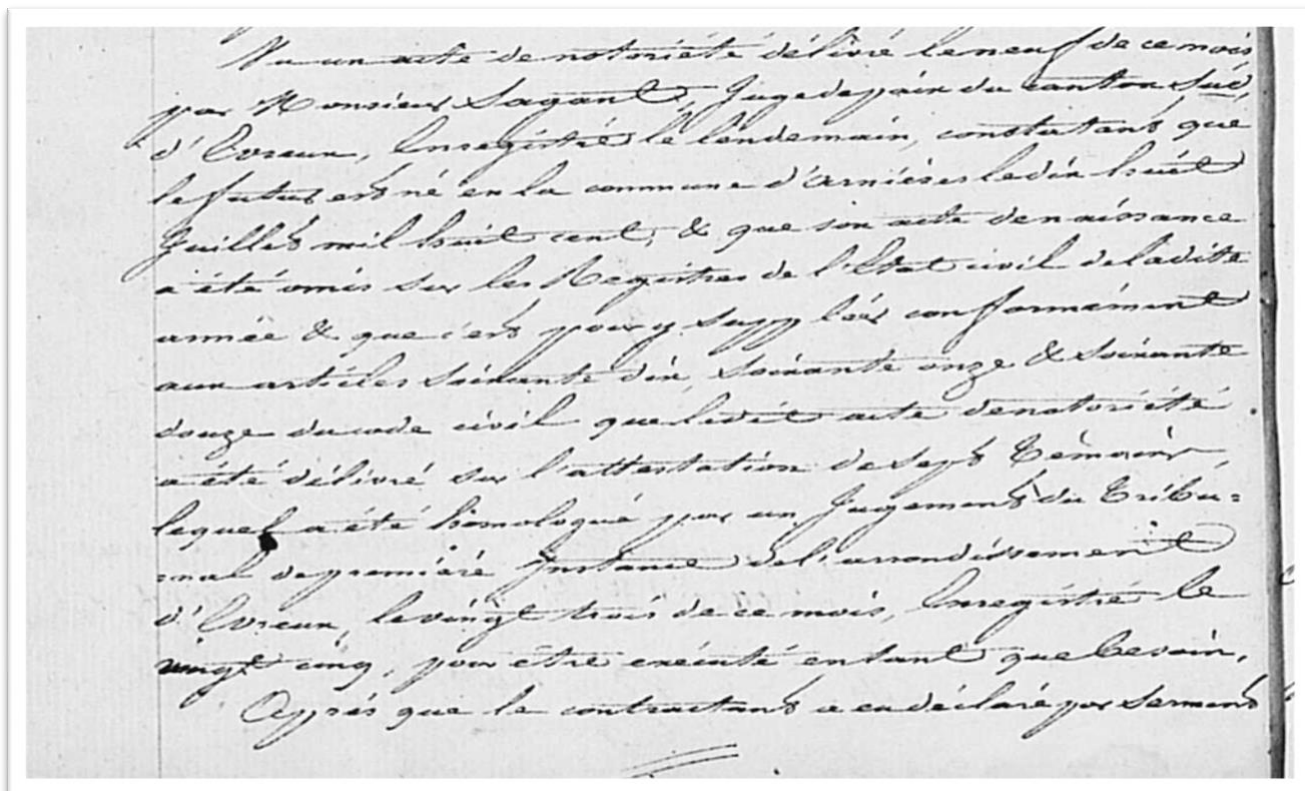 Vu un acte de notoriété délivré le neuf de ce mois
par Monsieur Sagant, Juge de paix du canton Sud
d'Evreux, Enregistré le lendemain, constatant que
le futur est né en la commune d'arnieres le dix huit
Juillet mil huit cent, & que son acte de naissance
a été omis sur les Registres de l'Etat civil de ladite
année & que c'est pour y suppléer conformément
aux articles soixante dix, soixante onze & soixante
douze du code civil que ledit acte de notoriété
a été délivré sur l'attestation de sept témoins,
lequel a été homologué par un Jugement du Tribu=
=nal de première Instance de l'arrondissement
d'Evreux, le vingt trois de ce mois, Enregistré le
vingt cinq, pour être exécuté en tant que besoin,
Après que le contractant a eu déclaré par serment